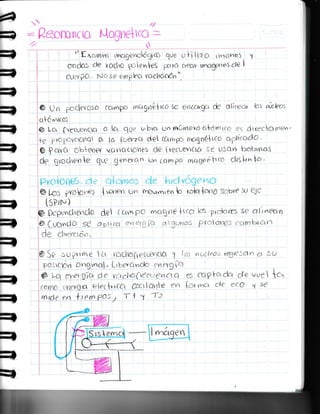 Resonancia Magnética
"Examen imagenológico que utiliza imanes y
ondas de radio potentes para crear imagenes del
cuerpo. No se emplea radiación"
Un poderoso campo magnético se encarga de alinear los núcleos
atómicos
La frecuencia a la que vibra un número atómico es directamen-
te proporcional a la fuerza del campo magnético aplicado.
Para obtener variaciones de frecuencia se usan bobinas
de gradiente que generan un campo magnético distinto.
Protones de atomos de hidrógeno
Los protones tienen un movimiento rotatorio sobre su eje
(SPIN)
Dependiendo del campo magnético los protones se alinean
Cuando se aplica energía algunos protones cambian
de dirección.
Se suprime la radiofrecuencia y los nucleos regresan a su
posición original. Liberando energía
La energía de radiofrecuencia es captada de vuelta
como energía eléctrica oscilante en forma de eco y se
mide en tiempos, T1 y T2
Sistema Imágen